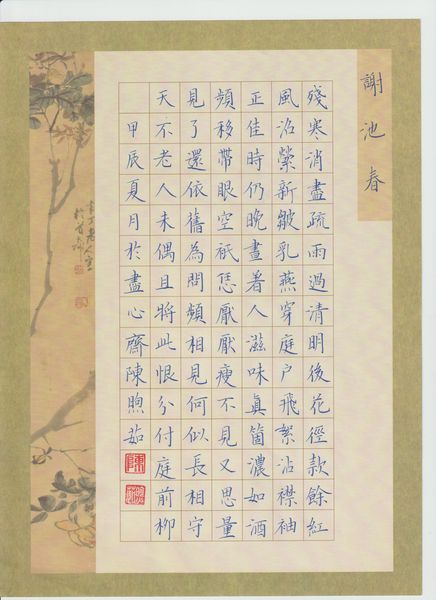 謝池春
殘寒消盡疏雨過清明後花徑款餘紅
風沼縈新皺乳燕穿庭戶飛絮沾襟袖
正佳時仍晚晝著人滋味真箇濃如酒
頻移帶眼空祇恁厭厭瘦不見又思量
見了還依舊為問頻相見何似長相守
天不老人未偶且將此恨分付庭前柳
甲辰夏月於盡心齋陳煦茹